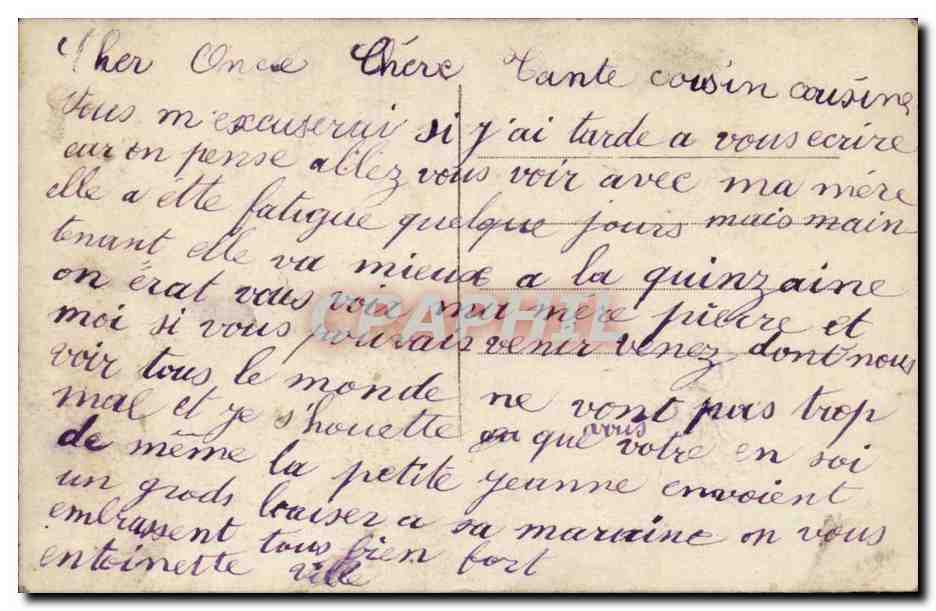 Cher Oncle Chére Tante cousin cousine
Vous m'excuserai si j'ai tarde a vous ecrire
car on pense allez vous voir avec ma mére
elle a ette fatigue quelque jours mais main
tenant elle va mieux a la quinzaine
on érat vous voir ma mére pierre et
moi si vous pouvais venir venez dont nous
voir tous le monde ne vont pas trop
mal et je s'houette que vous votre en soi
de même la petite jeanne envoient
un grods baiser a sa marraine on vous
embrassent tous bien fort
entoinette ville
CPARAMA CPAPHIL